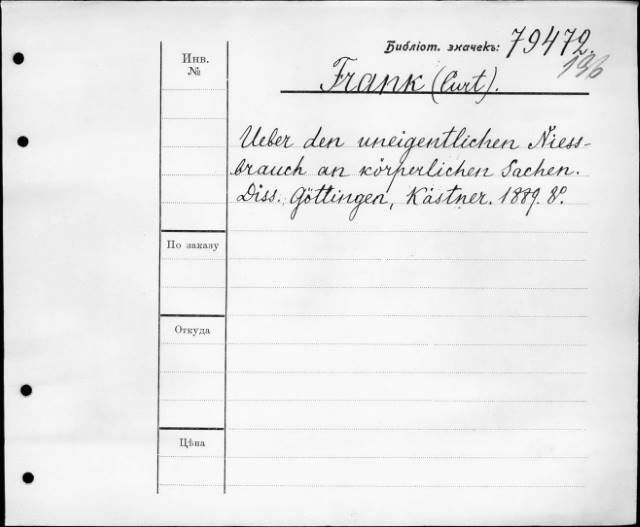 Библіот. значекъ: 79472.
196
Инв.
№
Frank (Curt).
Ueber den uneigentlichen Niess-
brauch an körperlichen Sachen.
Diss. Göttingen, Kästner. 1889. 8°.
По заказу
Откуда
Цѣна